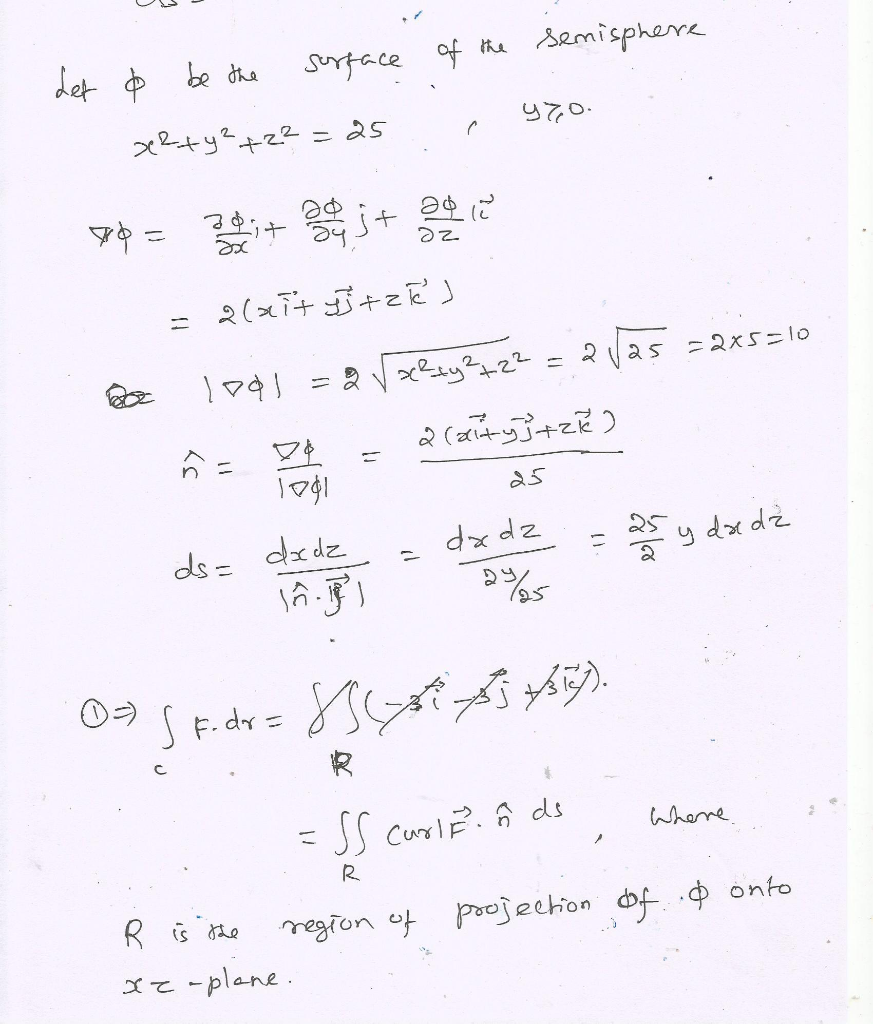 Let φ be the surface of the semisphere
x²+y²+z² = 25 , y≥0.
∇φ = ∂φ/∂x i + ∂φ/∂y j + ∂φ/∂z k⃗
= 2(x i⃗ + y j⃗ + z k⃗)
|∇φ| = 2 √(x²+y²+z²) = 2 √25 = 2×5=10
n̂ = ∇φ/|∇φ| = 2(x i⃗ + y j⃗ + z k⃗)/25
ds = dxdz/|n̂ . j⃗| = dx dz/(2y/25) = 25/2 y dx dz
①⇒ ∫_C F.dr = ∬_R (-3i⃗ -3j⃗ +3k⃗).
= ∬_R Curl F⃗ . n̂ ds , where
R is the region of projection of φ onto
xz-plane.